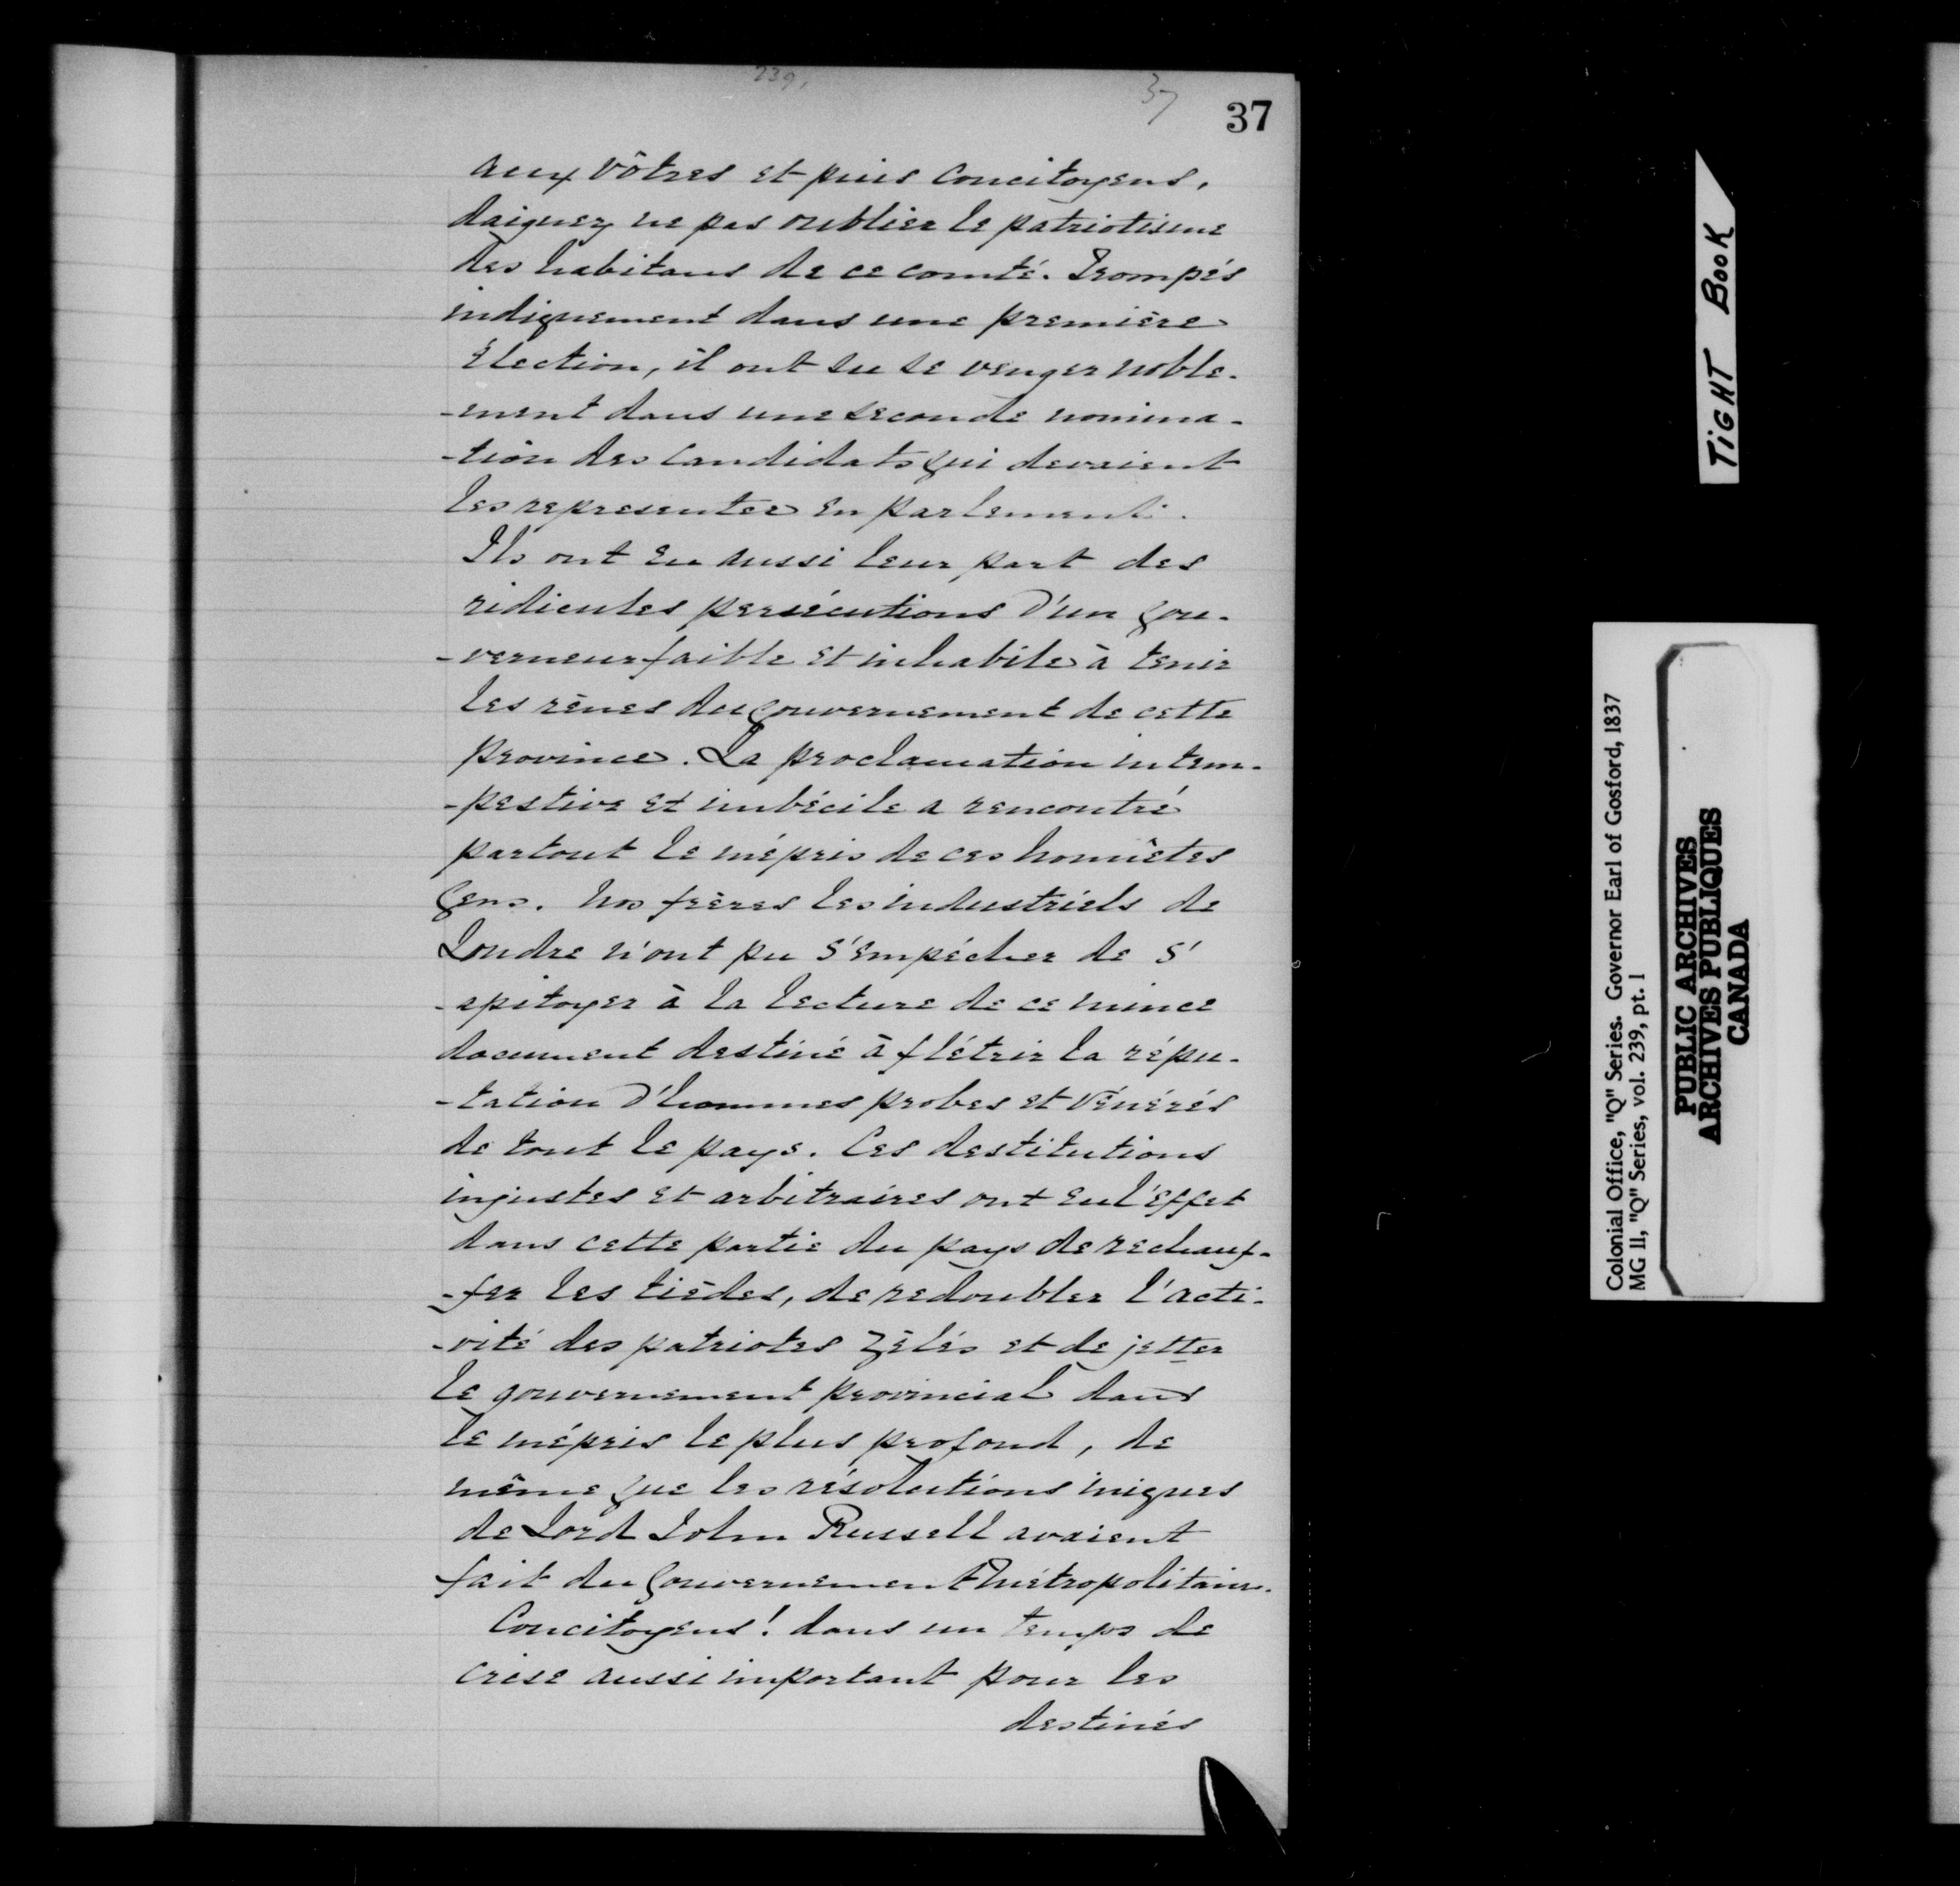 239.
37
37
aux vôtres et puis Concitoyens,
daignez ne pas oublier le patriotisme
des habitans de ce comté. Trompés
indignement dans une première
Election, il ont su se venger noble-
-ment dans une seconde nomina-
-tion des Candidats qui devaient
les representer en parlement.
Ils ont eu aussi leur part des
ridicules persécutions d'un gou-
-verneur faible et inhabile à tenir
les rênes du gouvernement de cette
province. La proclamation intem-
-pestive et imbécile a rencontré
partout le mépris de ces honnêtes
gens. Nos frères les industriels de
Londre n'ont pu s'empécher de s'
-apitoyer à la lecture de ce mince
document destiné à flétrir la répu-
-tation d'hommes probes et vénérés
de tout le pays. Ces destitutions
injustes et arbitraires ont eu l'effet
dans cette partie du pays de rechauf-
-fer les tièdes, de redoubler l'acti-
-vité des patriotes zélés et de jetter
le gouvernement provincial dans
le mépris le plus profond, de
même que les résolutions iniques
de Lord John Russell avaient
fait du Gouvernement Métropolitain.
Concitoyens! dans un temps de
crise aussi important pour les
destinés
TIGHT BOOK
Colonial Office, "Q" Series. Governor Earl of Gosford, 1837
MG 11, "Q" Series, vol. 239, pt. 1
PUBLIC ARCHIVES
ARCHIVES PUBLIQUES
CANADA